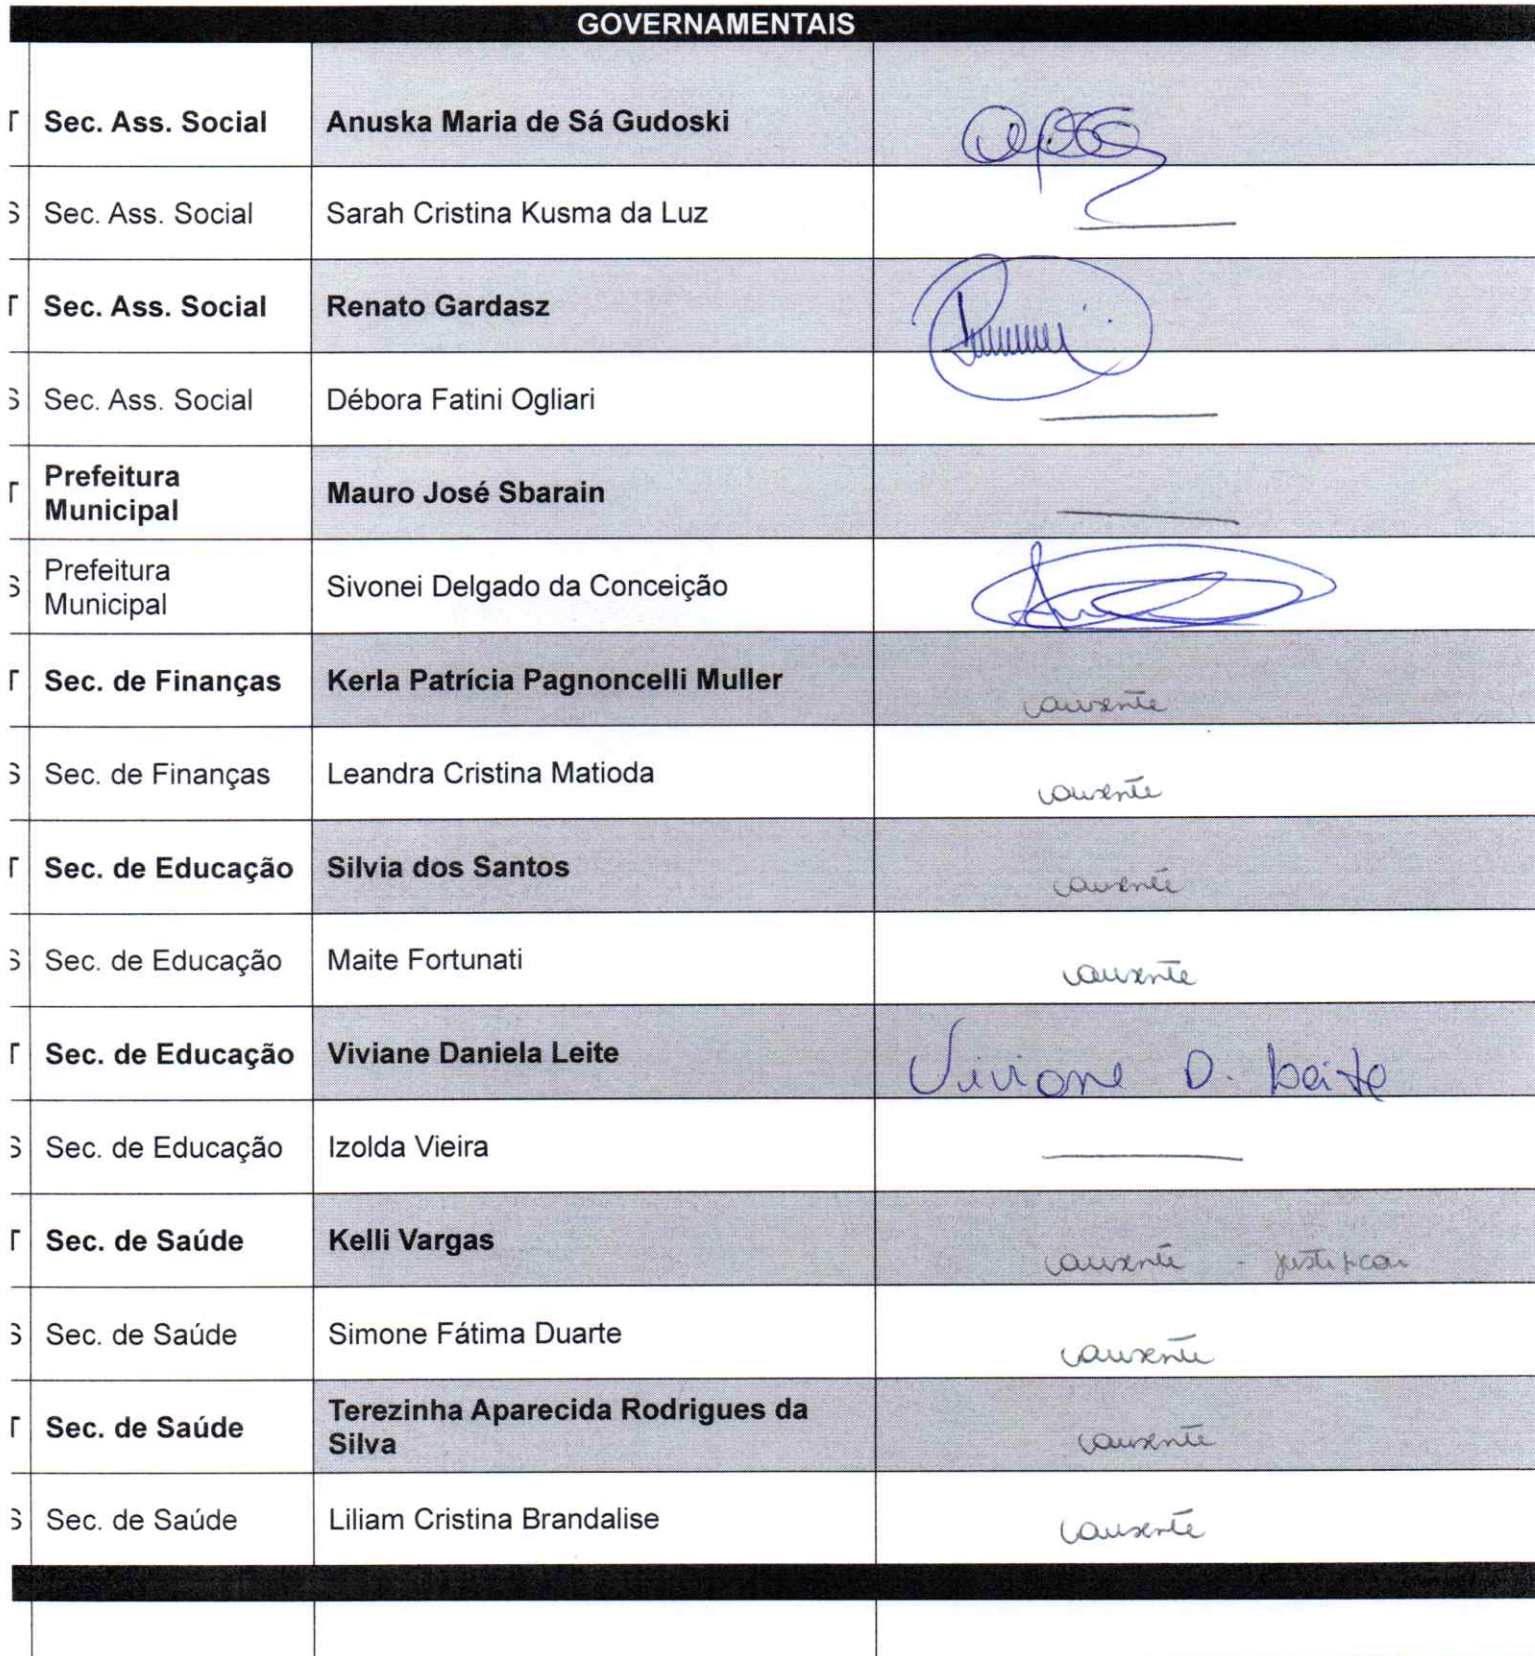 GOVERNAMENTAIS
T Sec. Ass. Social Anuska Maria de Sá Gudoski
S Sec. Ass. Social Sarah Cristina Kusma da Luz
T Sec. Ass. Social Renato Gardasz
S Sec. Ass. Social Débora Fatini Ogliari
T Prefeitura Municipal Mauro José Sbarain
S Prefeitura Municipal Sivonei Delgado da Conceição
T Sec. de Finanças Kerla Patrícia Pagnoncelli Muller ausente
S Sec. de Finanças Leandra Cristina Matioda ausente
T Sec. de Educação Silvia dos Santos ausente
S Sec. de Educação Maite Fortunati ausente
T Sec. de Educação Viviane Daniela Leite Viviane D. Leite
S Sec. de Educação Izolda Vieira
T Sec. de Saúde Kelli Vargas ausente - justificou
S Sec. de Saúde Simone Fátima Duarte ausente
T Sec. de Saúde Terezinha Aparecida Rodrigues da
Silva ausente
S Sec. de Saúde Liliam Cristina Brandalise ausente